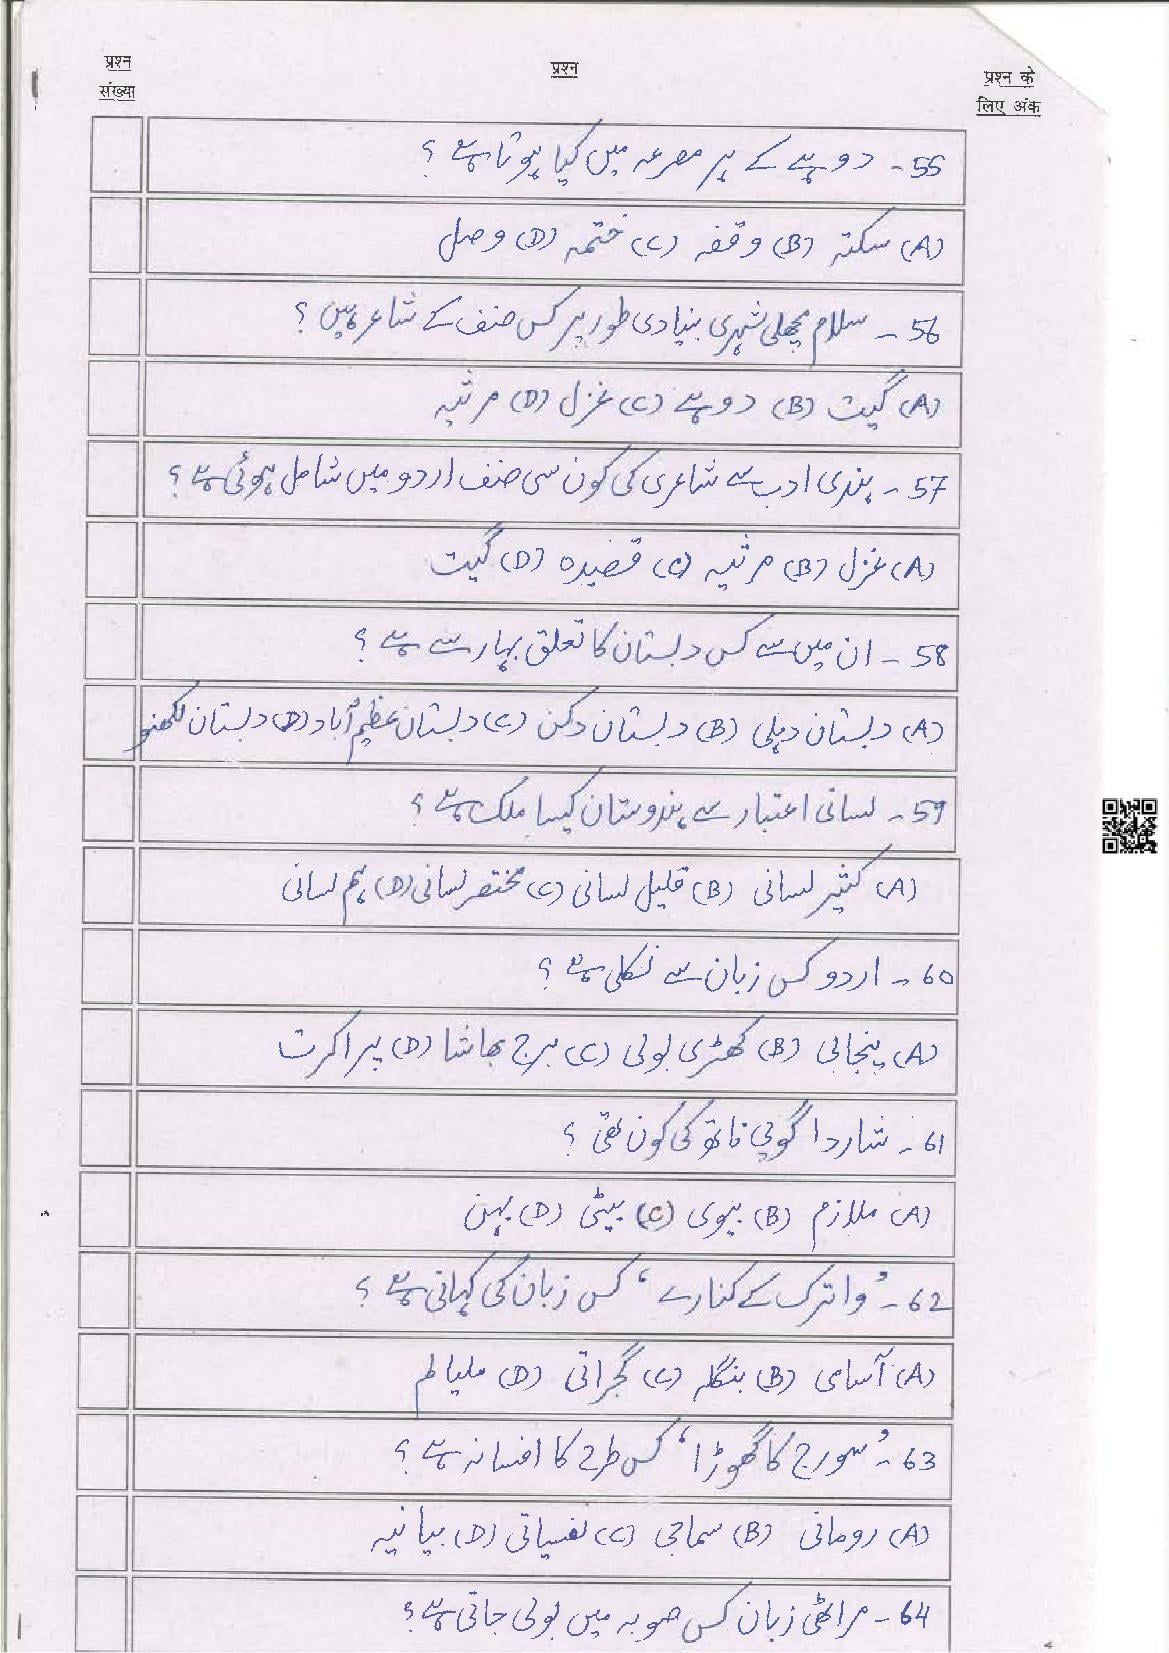 प्रश्न
संख्या
प्रश्न
प्रश्न के
लिए अंक
55- دوہے کے ہر مصرعہ میں کیا ہوتا ہے؟
(A) سکتہ (B) وقفہ (C) ختمہ (D) وصل
56- سلام مچھلی شہری بنیادی طور پر کس صنف کے شاعر ہیں؟
(A) گیت (B) دوہے (C) غزل (D) مرثیہ
57- ہندی ادب سے شاعری کی کون سی صنف اردو میں شامل ہوئی ہے؟
(A) غزل (B) مرثیہ (C) قصیدہ (D) گیت
58- ان میں سے کس دبستان کا تعلق بہار سے ہے؟
(A) دبستان دہلی (B) دبستان دکن (C) دبستان عظیم آباد (D) دبستان لکھنو
59- لسانی اعتبار سے ہندوستان کیسا ملک ہے؟
(A) کثیر لسانی (B) قلیل لسانی (C) مختصر لسانی (D) ہم لسانی
60- اردو کس زبان سے نکلی ہے؟
(A) پنجابی (B) کھڑی بولی (C) برج بھاشا (D) پراکرت
61- شاردا گوپی ناتھ کی کون تھی؟
(A) ملازم (B) بیوی (C) بیٹی (D) بہن
62- ’واترک کے کنارے‘ کس زبان کی کہانی ہے؟
(A) آسامی (B) بنگلہ (C) گجراتی (D) ملیالم
63- ’سورج کا گھوڑا‘ کس طرح کا افسانہ ہے؟
(A) رومانی (B) سماجی (C) نفسیاتی (D) بیانیہ
64- مراٹھی زبان کس صوبہ میں بولی جاتی ہے؟